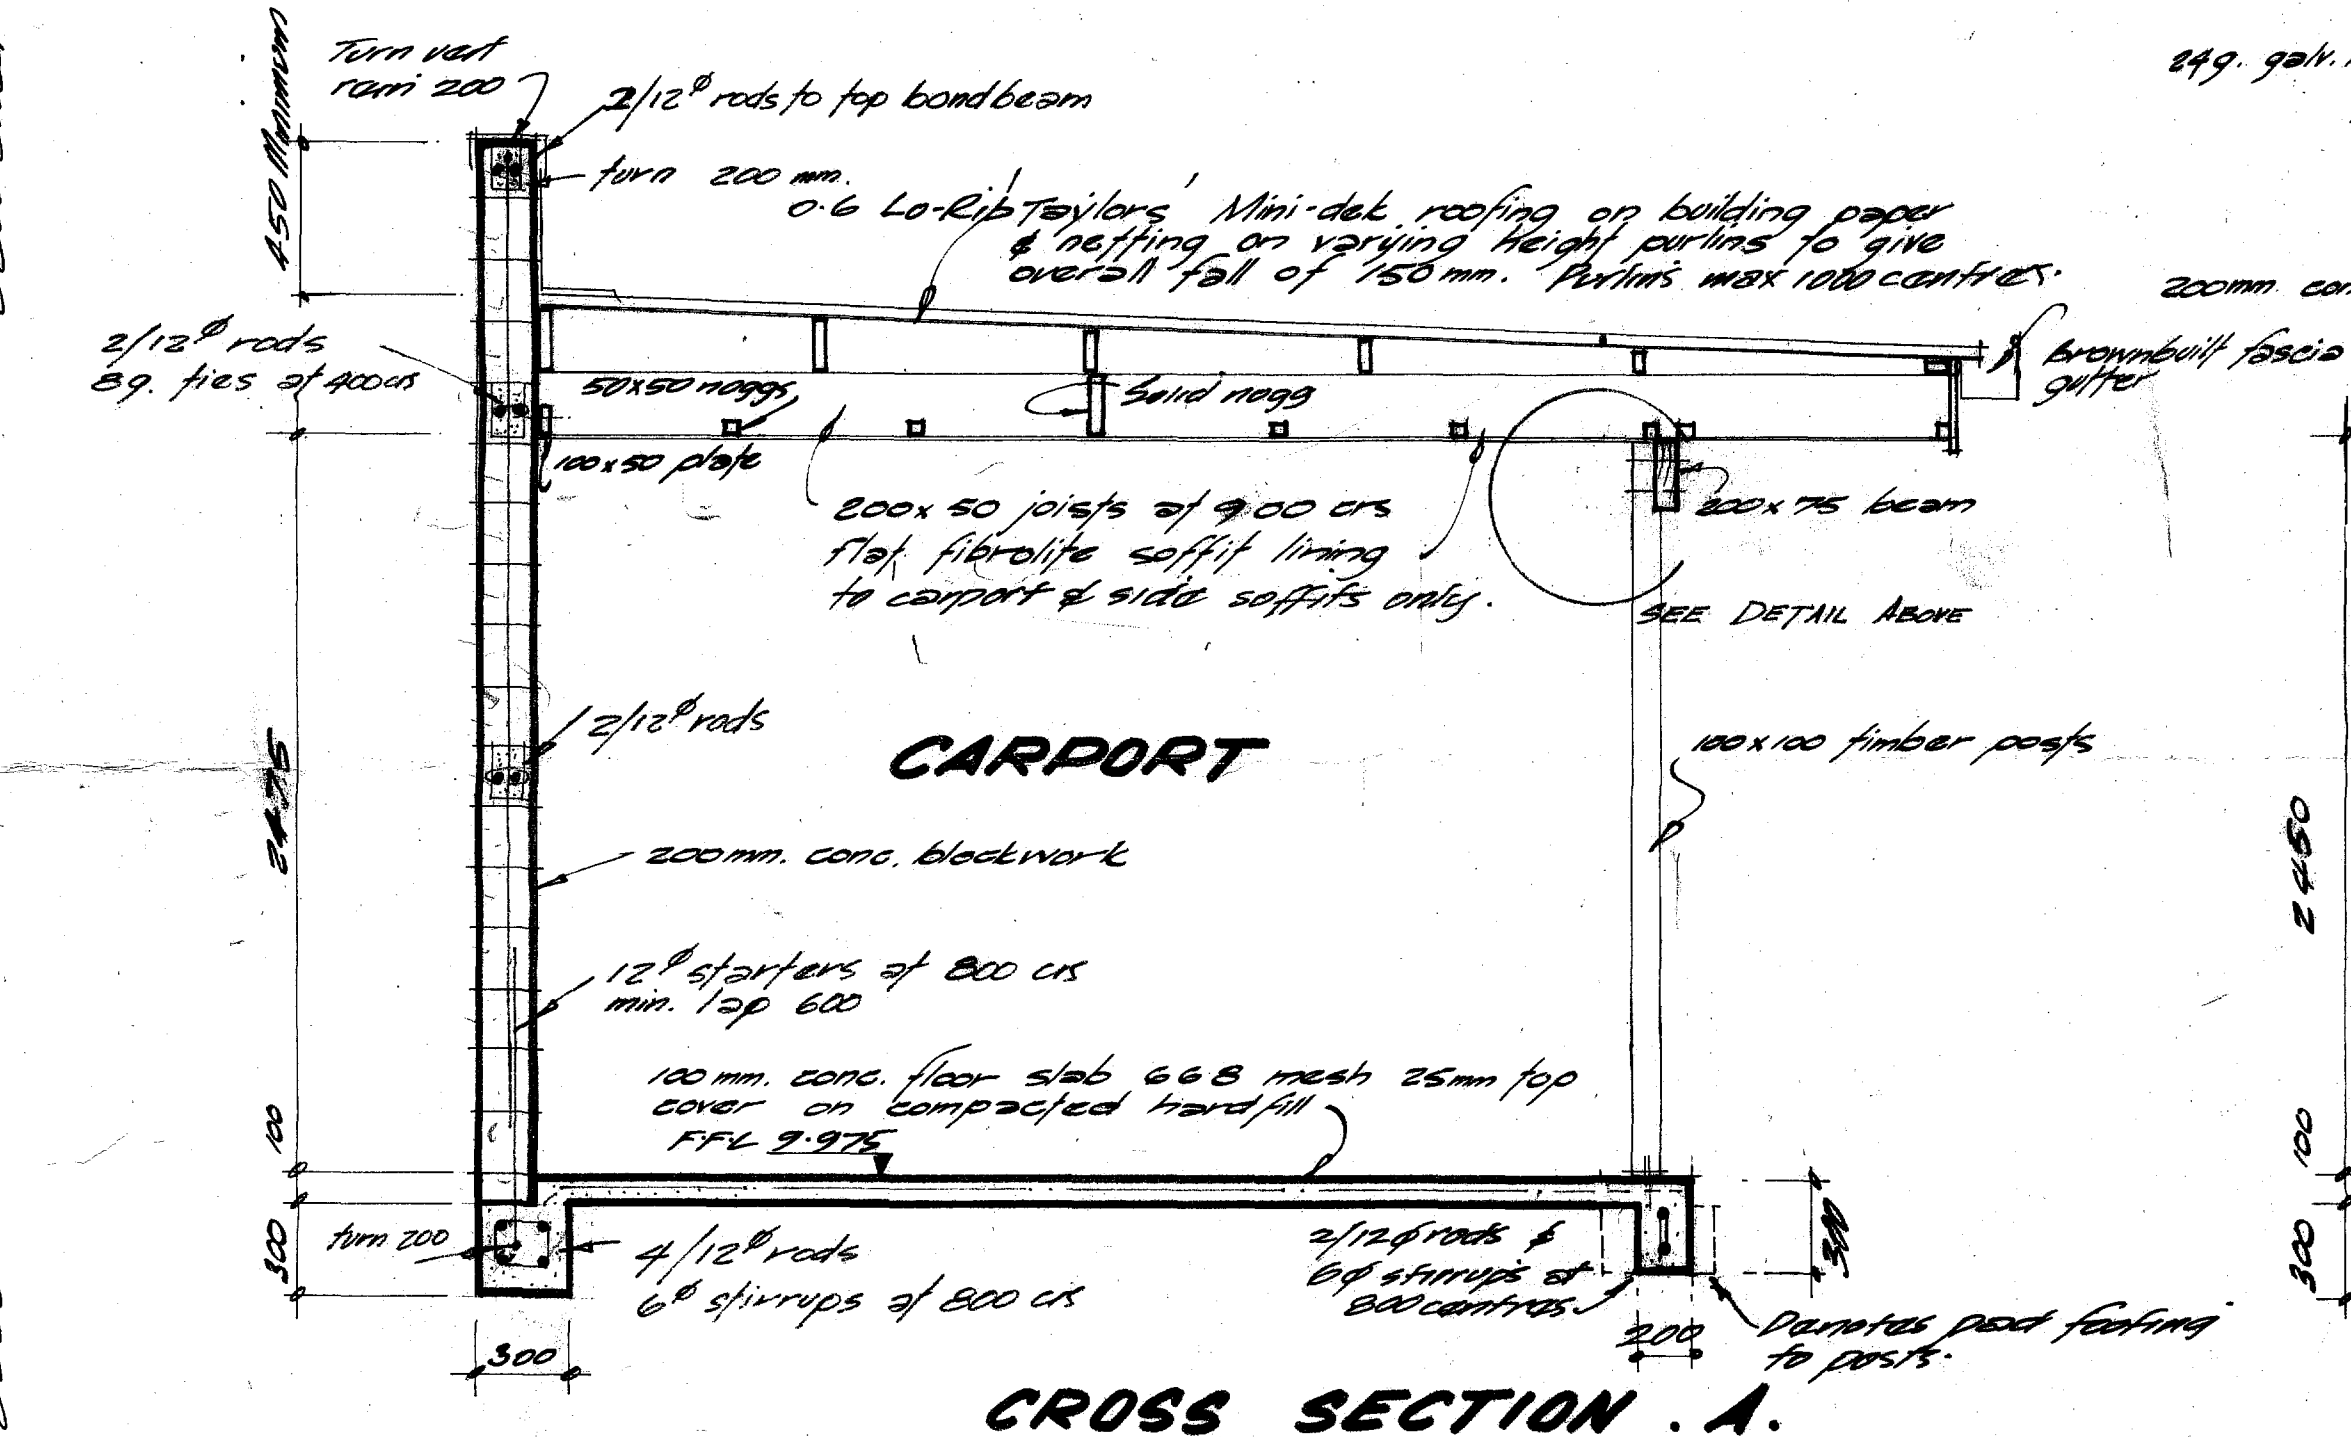 Turn vert
450 Minimum
24g. galv.
2/12ø rods to top bondbeam
turn 200 mm.
0.6 Lo-Rib Taylors Mini-dek roofing on building paper
& netting on varying height purlins to give
overall fall of 150mm. Purlins max 1000 centres.
200mm
Brownbuilt fascia
gutter
2/12ø rods
8g. ties at 400crs
50x50 noggs
Solid nogg
100x50 plate
200x50 joists at 900 crs
flat fibrolite soffit lining
to carport & side soffits only.
200x75 beam
SEE DETAIL ABOVE
2/12ø rods
2475
CARPORT
100x100 timber posts
200mm. conc. blockwork
2450
12ø starters at 800 crs
min. lap 600
100mm. conc. floor slab 668 mesh 25mm top
cover on compacted hardfill
F.F.L 9.975
100
100
turn 200
300
4/12ø rods
6ø stirrups at 800 crs
2/12ø rods &
6ø stirrups at
800 centres
300
300
300
200
Denotes pad footing
to posts.
CROSS SECTION . A.